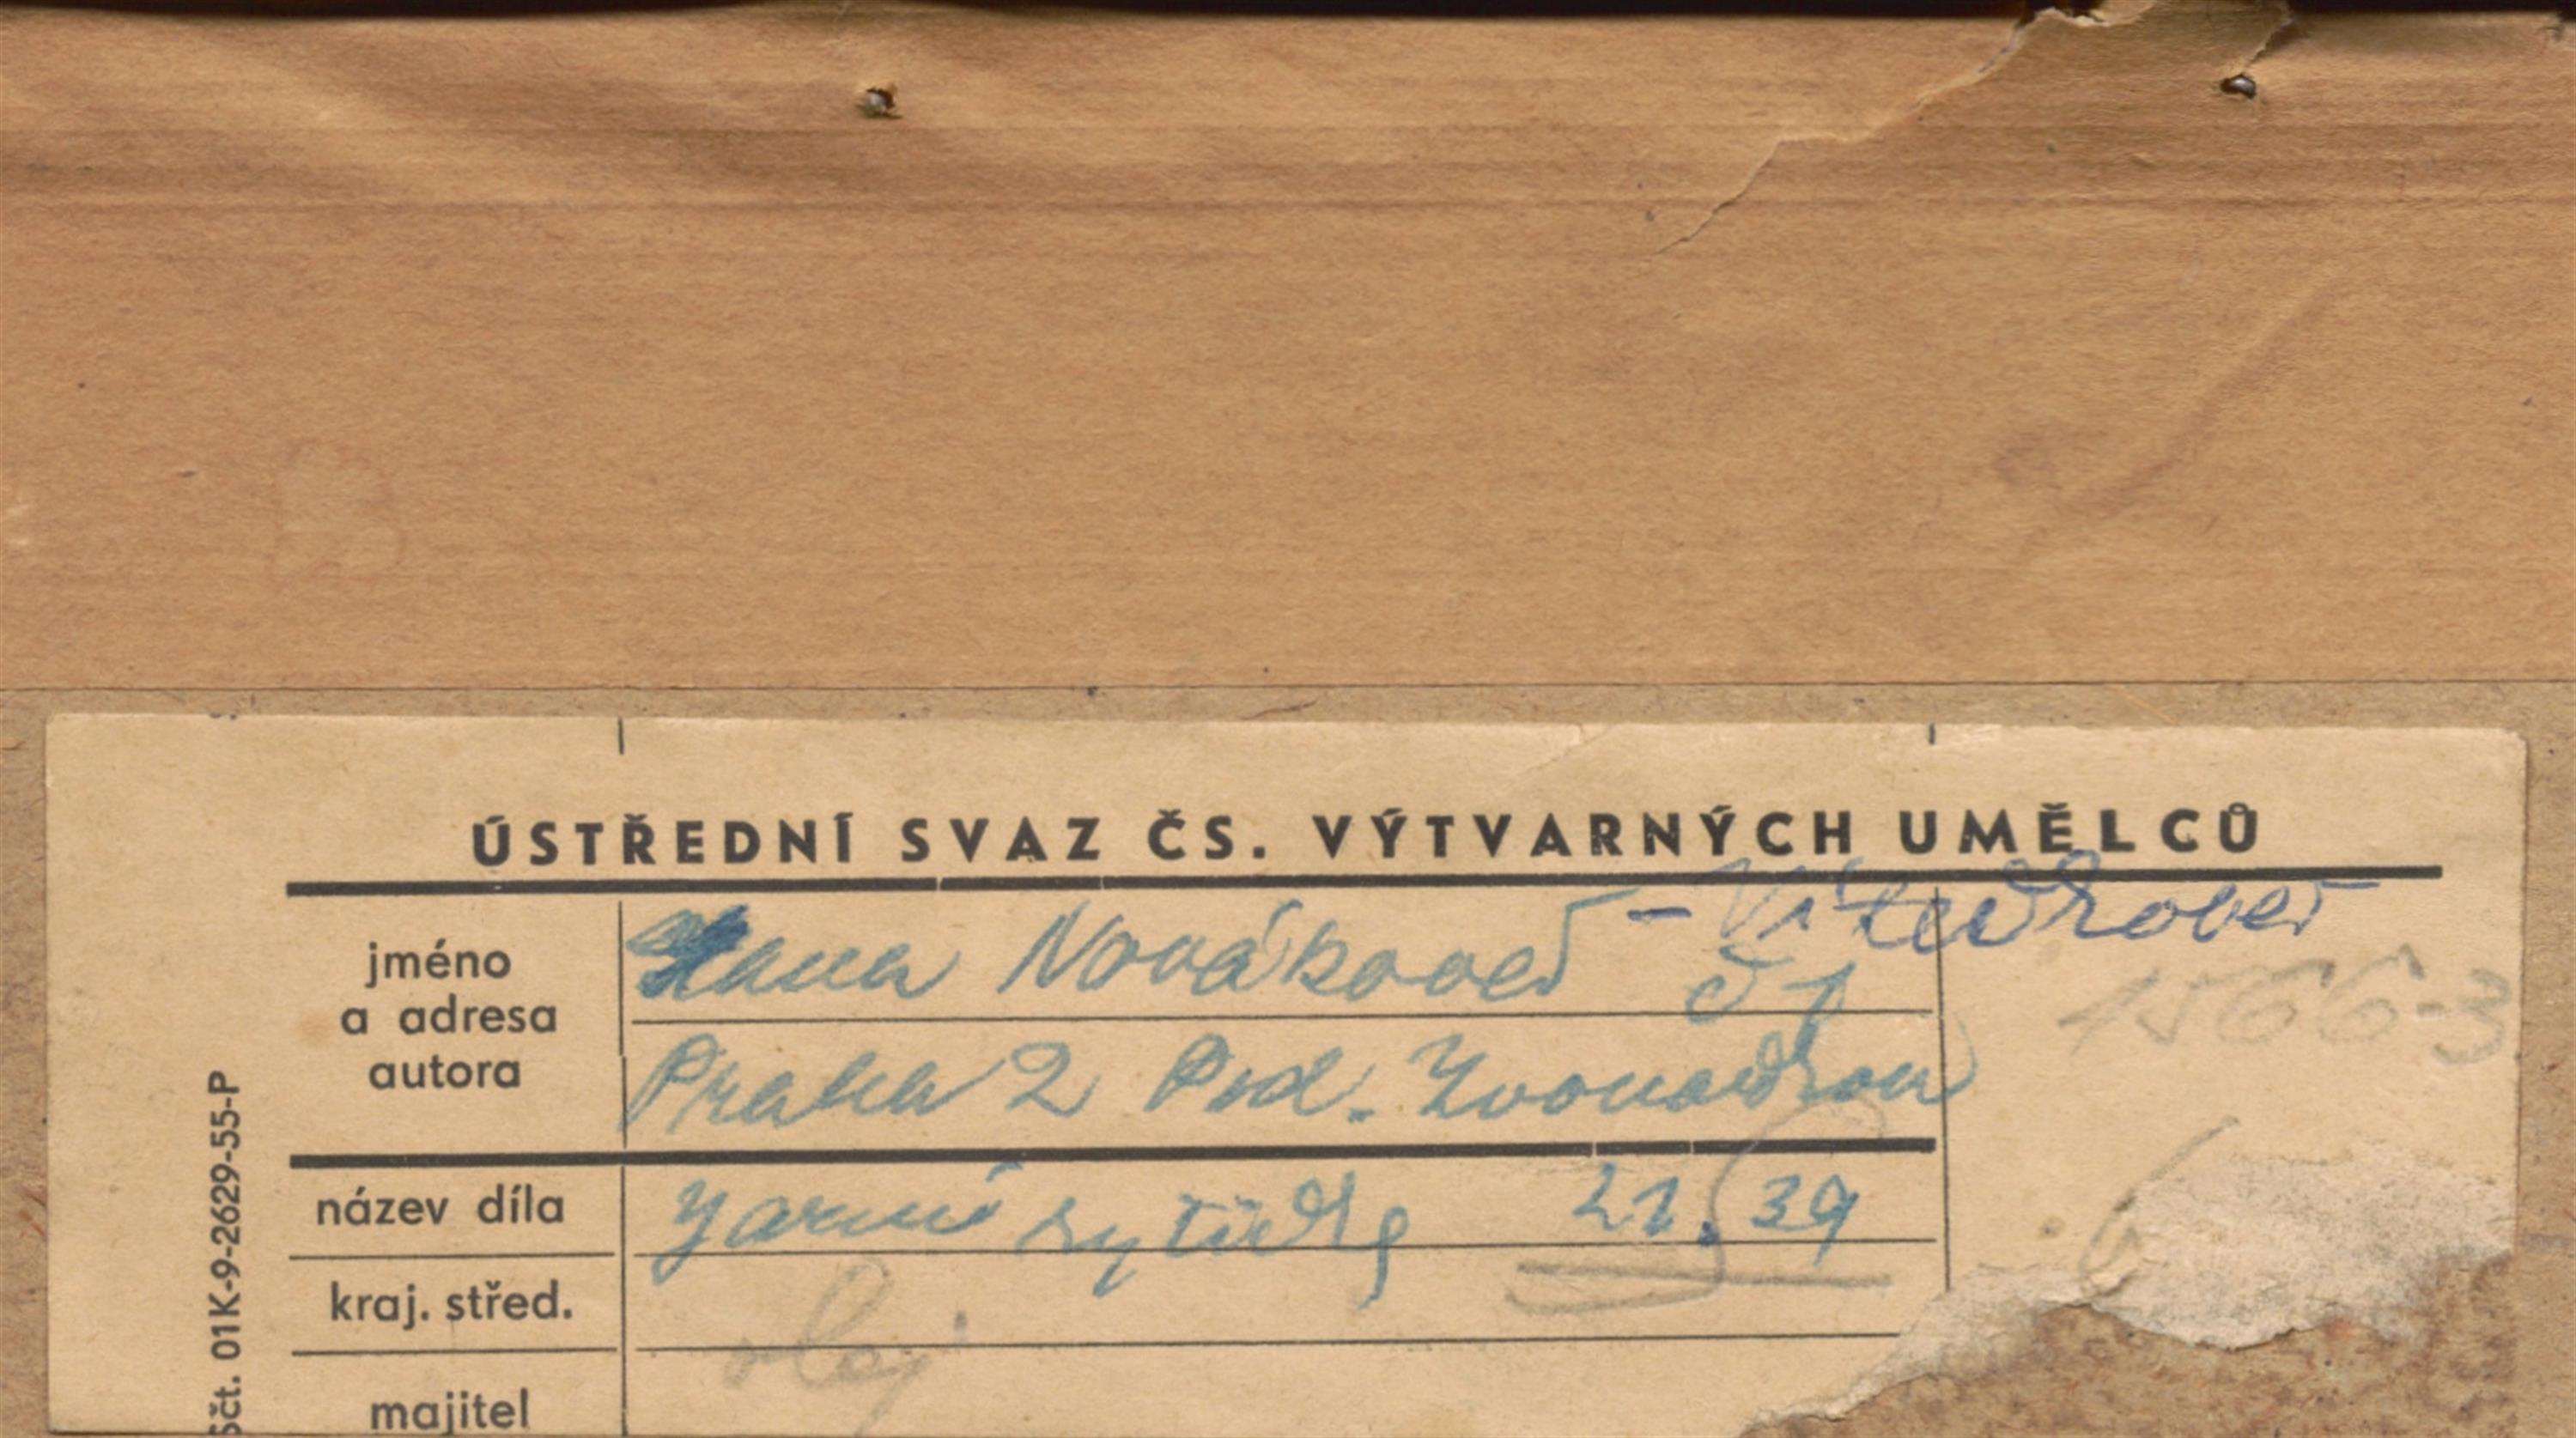 ÚSTŘEDNÍ SVAZ ČS. VÝTVARNÝCH UMĚLCŮ
jméno a adresa autora
Hana Nováková -
č 1
1566-3
Praha 2 Pod. Zvonařkou
název díla
Jarní kytičky 21.39
kraj. střed.
olej
majitel
Sčt. 01K-9-2629-55-P